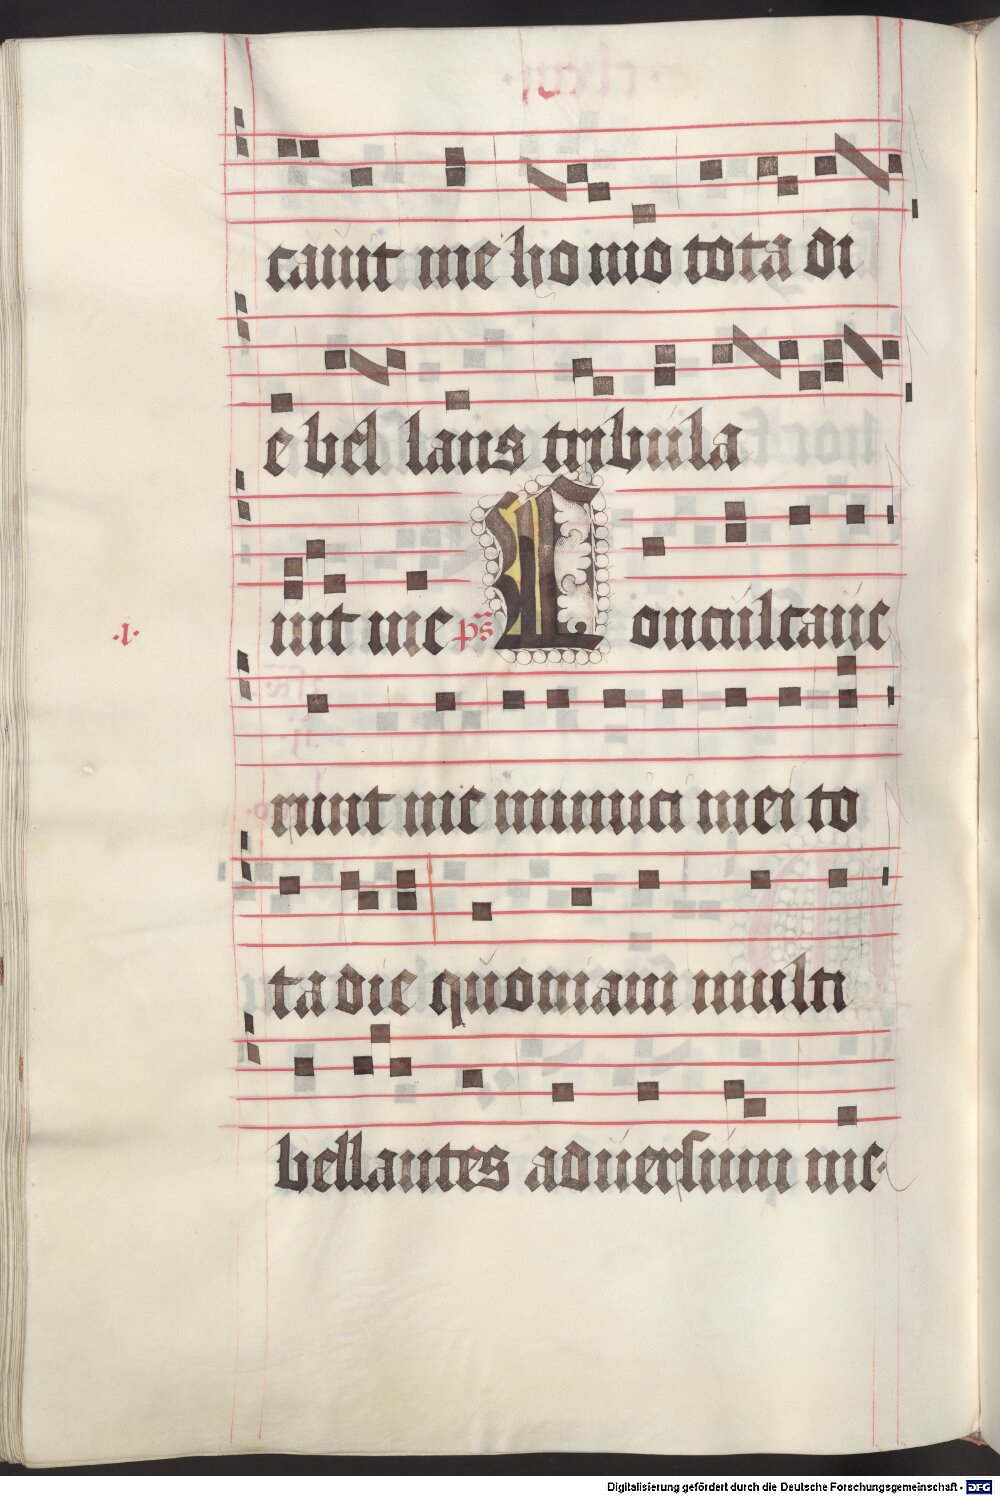 cauit me homo tota di
e bel lans tribula
uit me ps Conculcaue
runt me inimici mei to
.I.
ta die quoniam multi
bellantes aduersum me
Digitalisierung gefördert durch die Deutsche Forschungsgemeinschaft - DFG